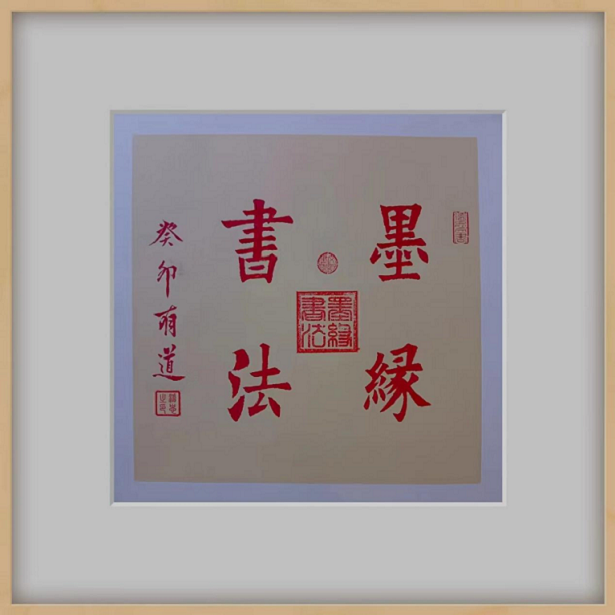 墨緣
書法
墨緣
書法
癸卯有道